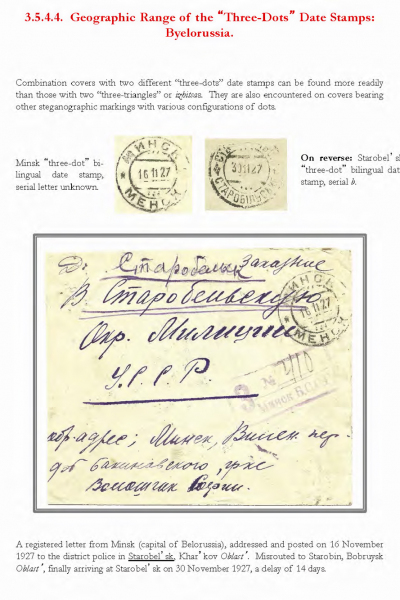 3.5.4.4. Geographic Range of the “Three-Dots” Date Stamps:
Byelorussia.
Combination covers with two different “three-dots” date stamps can be found more readily
than those with two “three-triangles” or izhitsas. They are also encountered on covers bearing
other steganographic markings with various configurations of dots.
Minsk “three-dot” bi-
lingual date stamp,
serial letter unknown.
МИНСК
16 11 27
МЕНСК
30 11 27
СТАРОБІЛЬСЬК
On reverse: Starobel’sk
“three-dot” bilingual date
stamp, serial b.
Старобельск Заказное
В Старобельскую
МИНСК
16 11 27
МЕНСК
Окр. Милицию
У.С.С.Р.
З №
Минск
обр. адрес; Минск, Вилен. пер.
Софии.
A registered letter from Minsk (capital of Belorussia), addressed and posted on 16 November
1927 to the district police in Starobel’sk, Khar’kov Oblast’. Misrouted to Starobin, Bobruysk
Oblast’, finally arriving at Starobel’sk on 30 November 1927, a delay of 14 days.